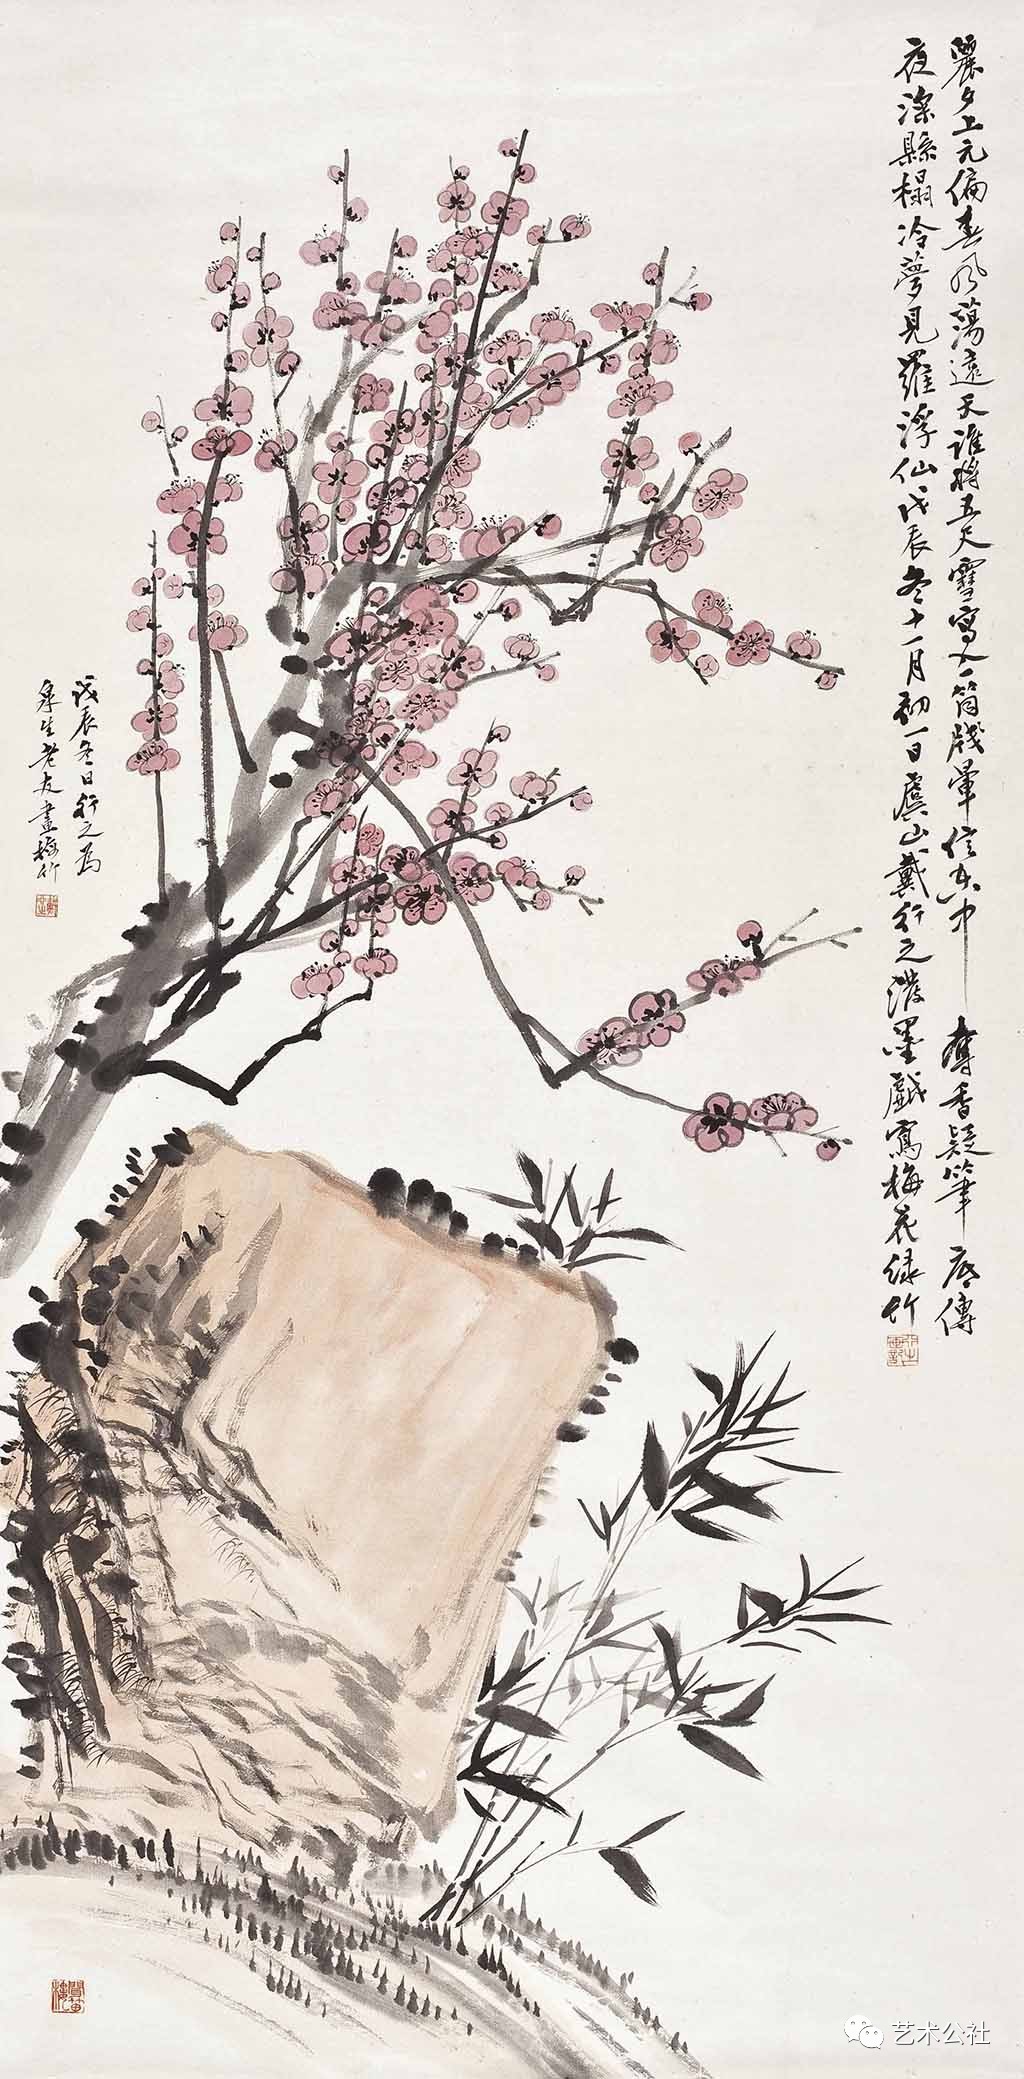 麗夕上元偏春風蕩遠天誰將五尺雪寫入一筒牋暈信中薄香疑筆底傳
夜深縣榻冷夢見羅浮仙戊辰冬十一月初一日虞山戴行之潑墨戲寫梅花綠竹
戊辰冬日行之為
泉生老友畫梅竹
艺术公社